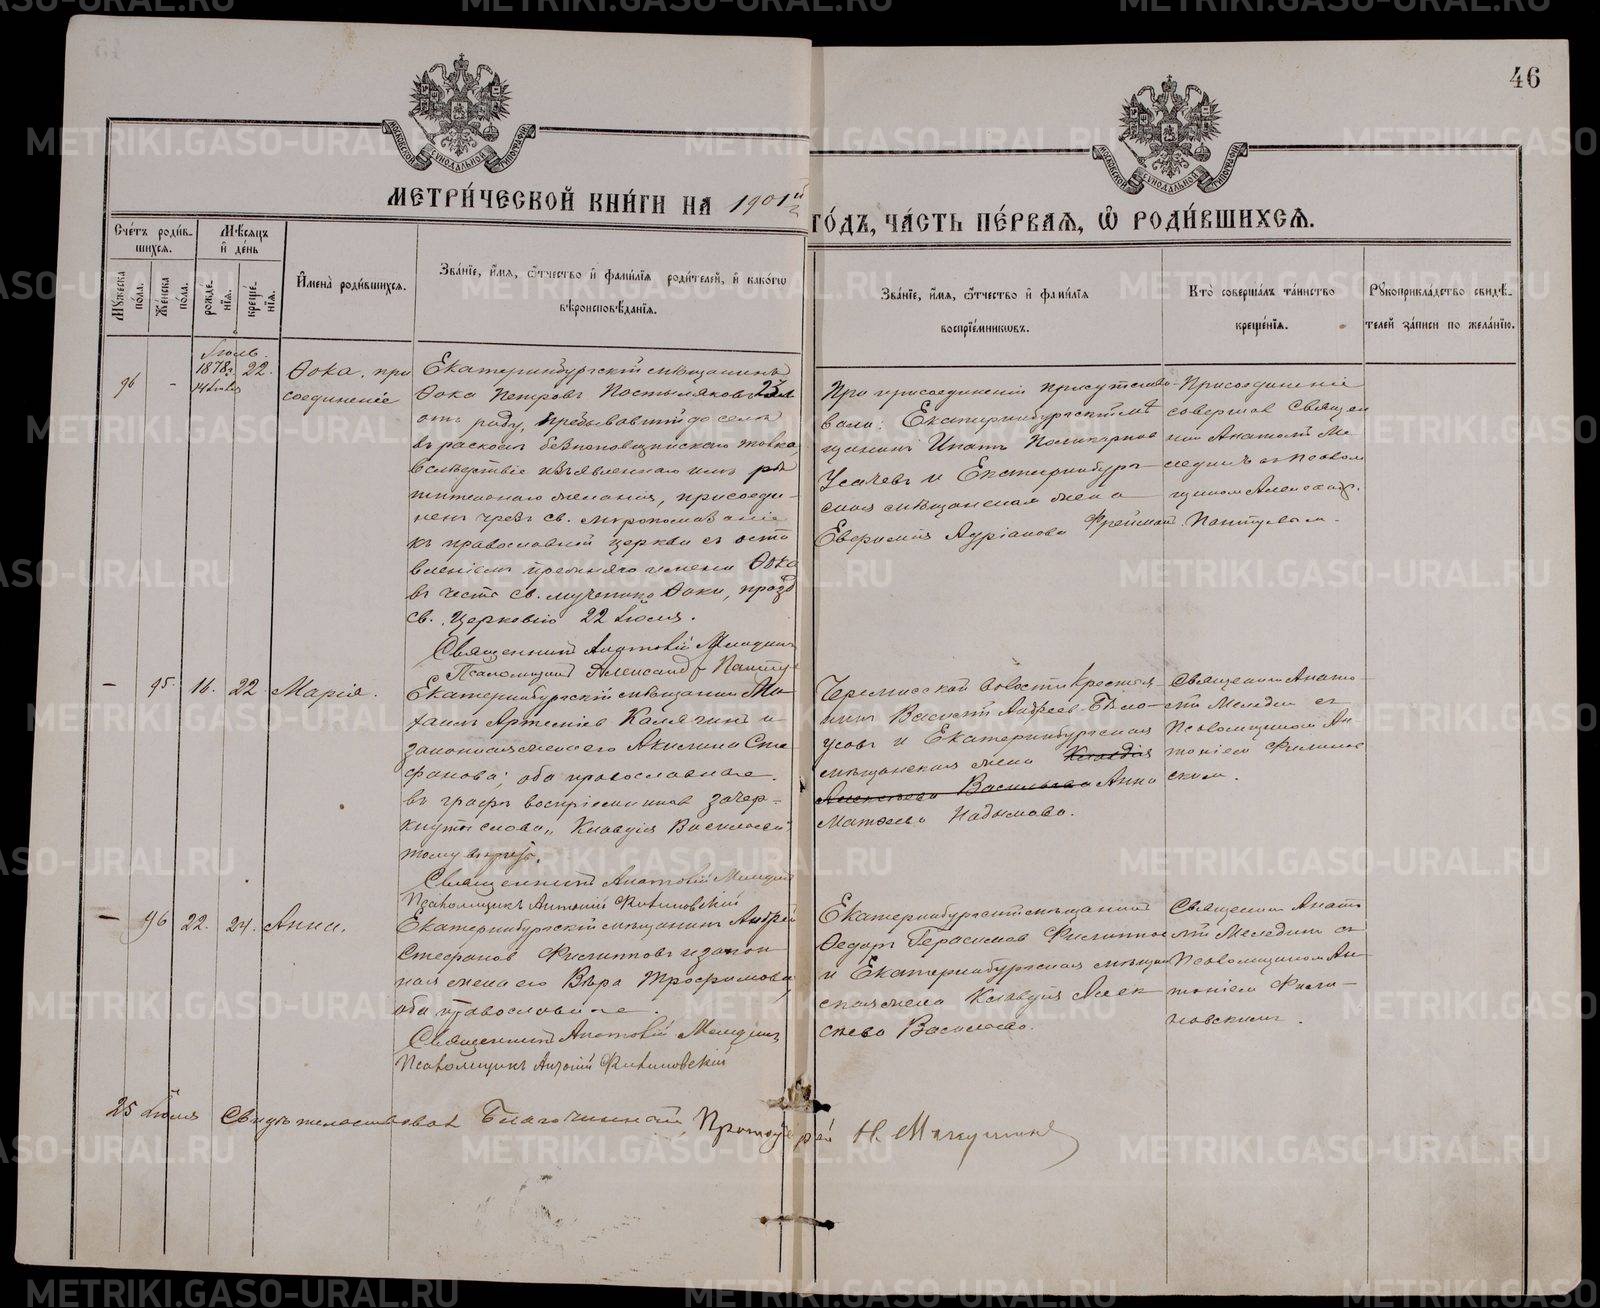 46
МЕТРИ́ЧЕСКОЙ КНИ́ГИ НА 1901й
ГО́ДЪ, ЧА́СТЬ ПЕ́РВАѦ, Ѡ҆ РОДИ́ВШИХСѦ.
Сче́тъ роди́в-
шихся.
Мѣ́сяцъ
и҆ де́нь
Мꙋжеска по́ла.
Же́нска по́ла.
рожде́-
нїѧ.
креще́-
нїѧ.
И҆мена̀ роди́вшихсѧ.
Зва́нїе, и҆́мѧ, ѻ҆́тчество и҆ фами́лїѧ роди́телей, и҆ како́гѡ
вѣроисповѣ́данїѧ.
Зва́нїе, и҆́мѧ, ѻ҆́тчество и҆ фами́лїѧ
воспрїе́мникѡвъ.
Кто̀ соверша́лъ та́инство
креще́нїѧ.
Рꙋкоприкла́дство свидѣ́-
телей за́писи по жела́нїю.
Іюль
96
-
1878г.
22.
Ѳока. при
соединеніе
Екатеринбургскій мѣщанинъ
Ѳока Петровъ Постыляковъ 23 лѣт
отъ роду, пребывавшій до селѣ
въ расколѣ безпоповщинскаго толка,
вслѣдствіе изъявленнаго имъ рѣ
шительнаго желанія, присоеди-
ненъ чрезъ св. миропомазаніе
къ православной церкви съ оста
вленіемъ прежняго имени Ѳока
въ честь св. мученика Ѳоки, празд
св. Церковію 22 Іюля.
Священникъ Анатолій Мелединъ
Псаломщикъ Александръ Панту
При присоединеніи присутство-
вали: Екатеринбургскій мѣ
щанинъ Ипатъ Поликарповъ
Усачевъ и Екатеринбург
ская мѣщанская жена
Евфимія Адріанова
Присоединеніе
совершалъ Священ
никъ Анатолій Ме
лединъ съ псалом
щикомъ Александр.
–
95.
16.
22
Марія.
Екатеринбургскій мѣщанинъ Ми-
хаилъ Артеміевъ Калягинъ и
законная жена его Акилина Сте
фанова; оба православные.
въ графѣ воспріемниковъ зачер-
кнутыя слова „Клавдія Васильева"
тому вѣрить.
Священникъ Анатолій Меледин
Псаломщикъ Антоній Филиповскій
Черемисской волости крестья
нинъ Василій Андреевъ Бѣло-
усовъ и Екатеринбургская
мѣщанская жена Клавдія
Алексѣева Васильева Анна
Матѳеева Надымова.
Священникъ Анато-
лій Меледин съ
Псаломщикомъ Ан-
тоніемъ Филипов
скимъ.
–
96
22.
24.
Анна.
Екатеринбургскій мѣщанинъ Андрей
Стефановъ Филипповъ и закон
ная жена его Вѣра Трофимова,
оба православные.
Священникъ Анатолій Меледин,
Псаломщикъ Антоній Филиповскій
Екатеринбургскій мѣщанинъ
Ѳедоръ Герасимовъ Филиппов
и Екатеринбургская мѣщан
ская жена Клавдія Алек
сѣева Васильева.
Священникъ Анато
лій Меледин съ
Псаломщикомъ Ан-
тоніемъ Фили-
повскимъ.
25 Іюля Свидѣтельствовалъ Благочинный, Протоіерей Н.
METRIKI.GASO-URAL.RU